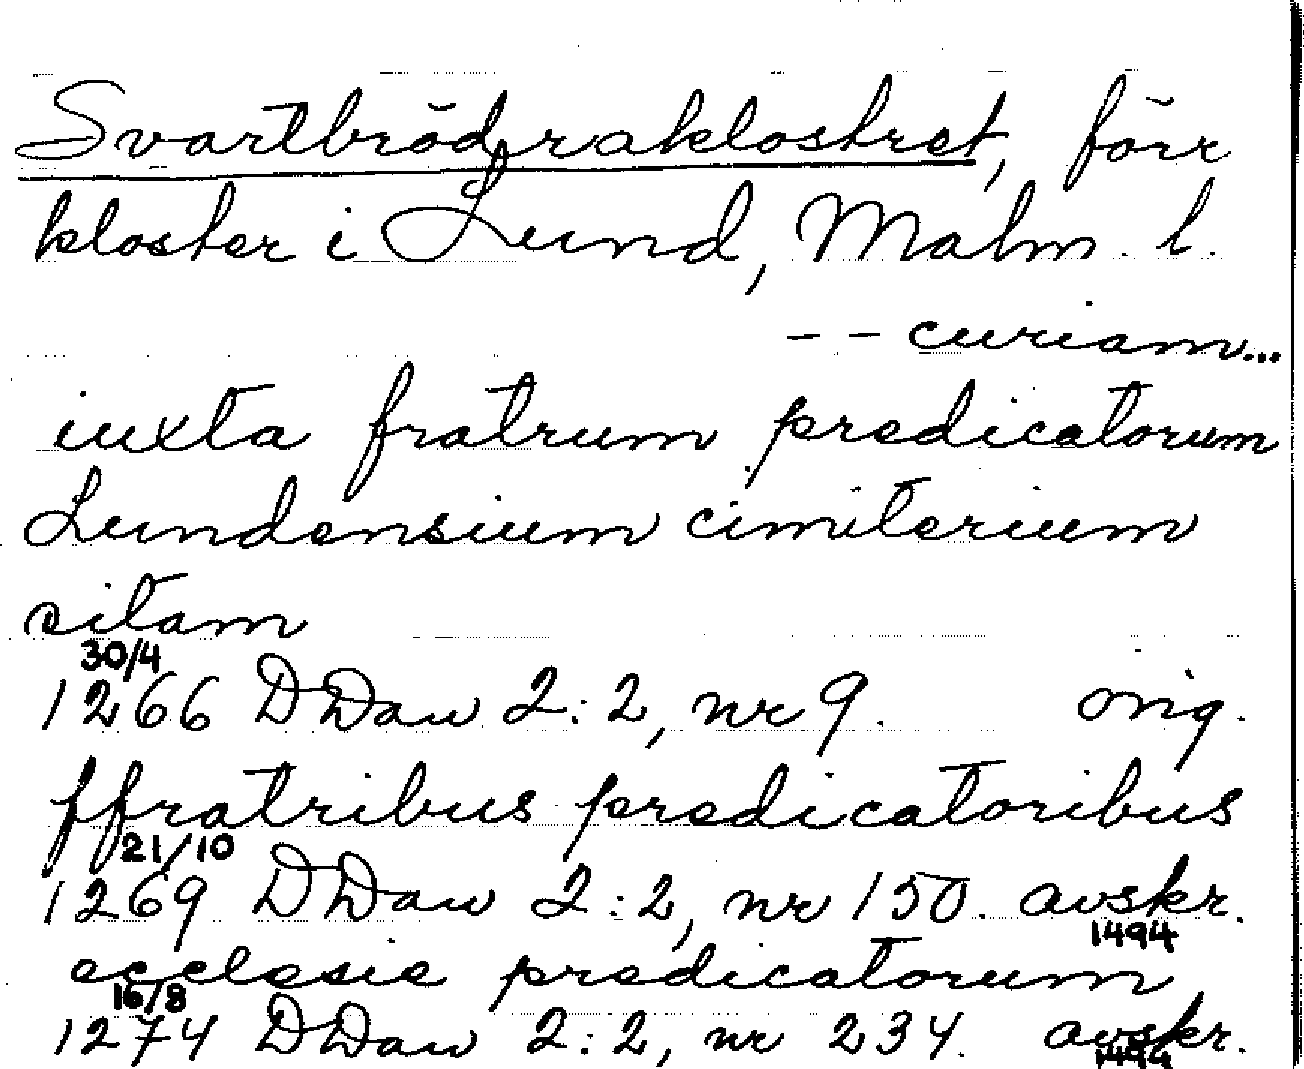 Svartbrödraklostret, förr
kloster i Lund, Malm. l.
-- curiam...
iuxta fratrum predicatorum
Lundensium cimiterium
sitam
30/4
1266 DDan 2:2, nr 9. orig.
ffratribus predicatoribus
21/10
1269 DDan 2:2, nr 150. avskr.
1494
ecclesie predicatorum
16/8
1274 DDan 2:2, nr 234. avskr.
1494